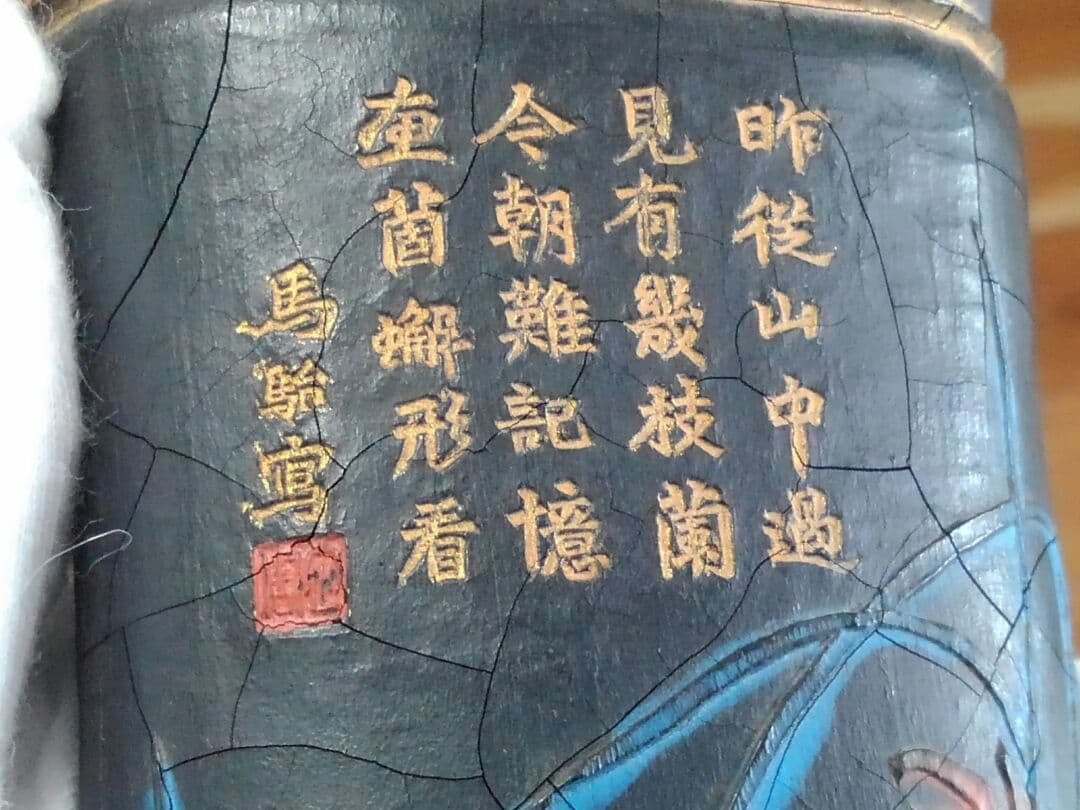 昨從山中過
見有幾枝蘭
今朝難記憶
箇形看
馬駘寫